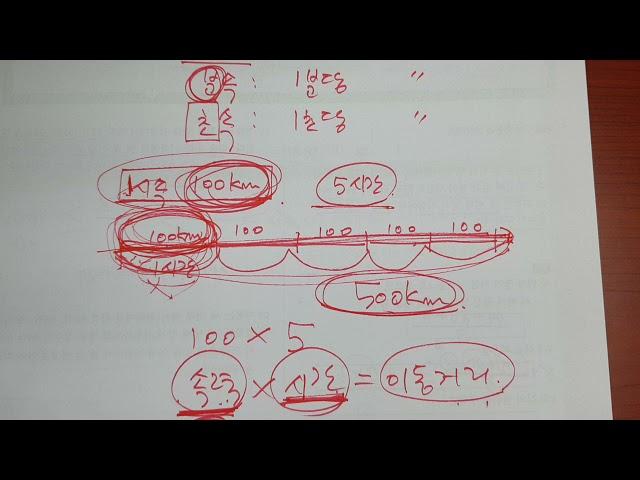 분속: 1분당 〃
초속: 1초당 〃
시속 100km. 5시간.
100km 100 100 100 100
1시간
500km
100 × 5
속력 × 시간 = 이동거리.